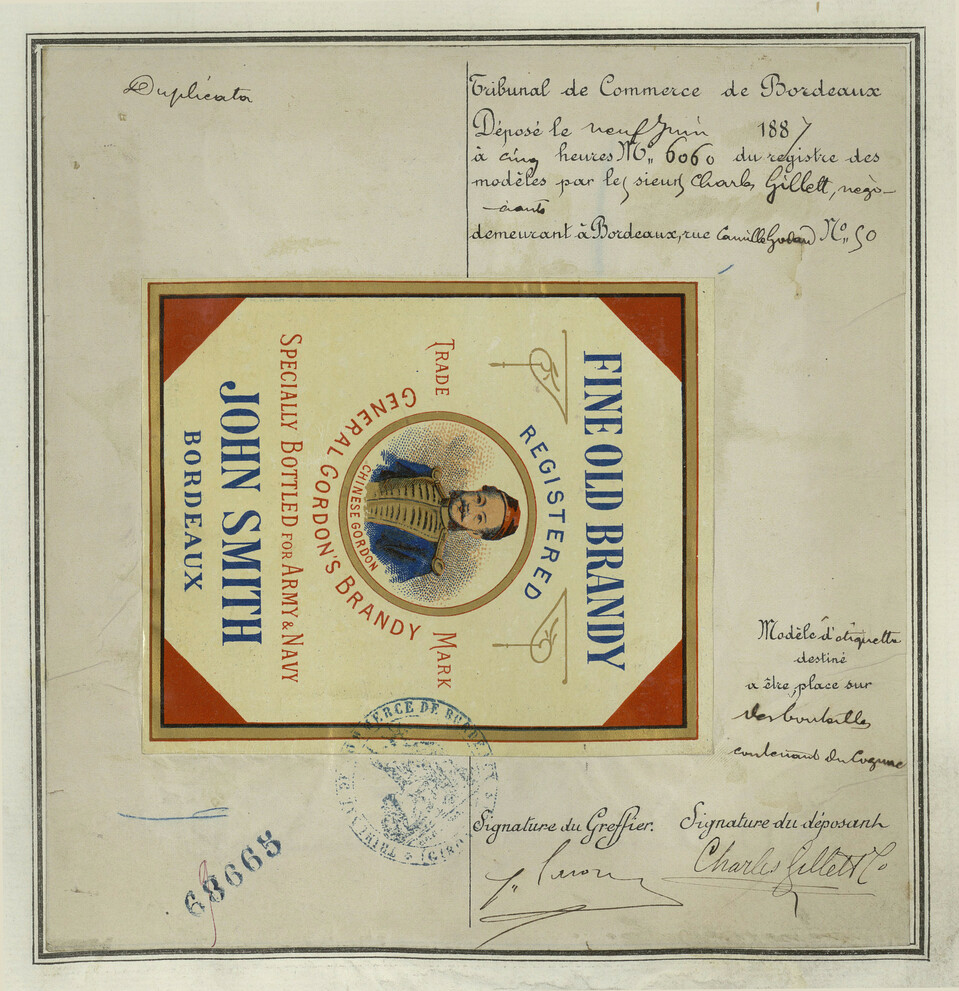 Duplicata
Tribunal de Commerce de Bordeaux
Déposé le neuf Juin 1887
à cinq heures No. 6060 du registre des
modèles par les sieurs Charles Gillett, négo-
-ciants
demeurant à Bordeaux, rue Camille Godard No. 50
FINE OLD BRANDY
REGISTERED
TRADE MARK
CHINESE GORDON
GENERAL GORDON'S BRANDY
SPECIALLY BOTTLED FOR ARMY & NAVY
JOHN SMITH
BORDEAUX
Modèle d'étiquette
destiné
a être place sur
des bouteilles
contenant du Cognac
Signature du Greffier. Signature du déposant
Charles Gillett & Co
68665